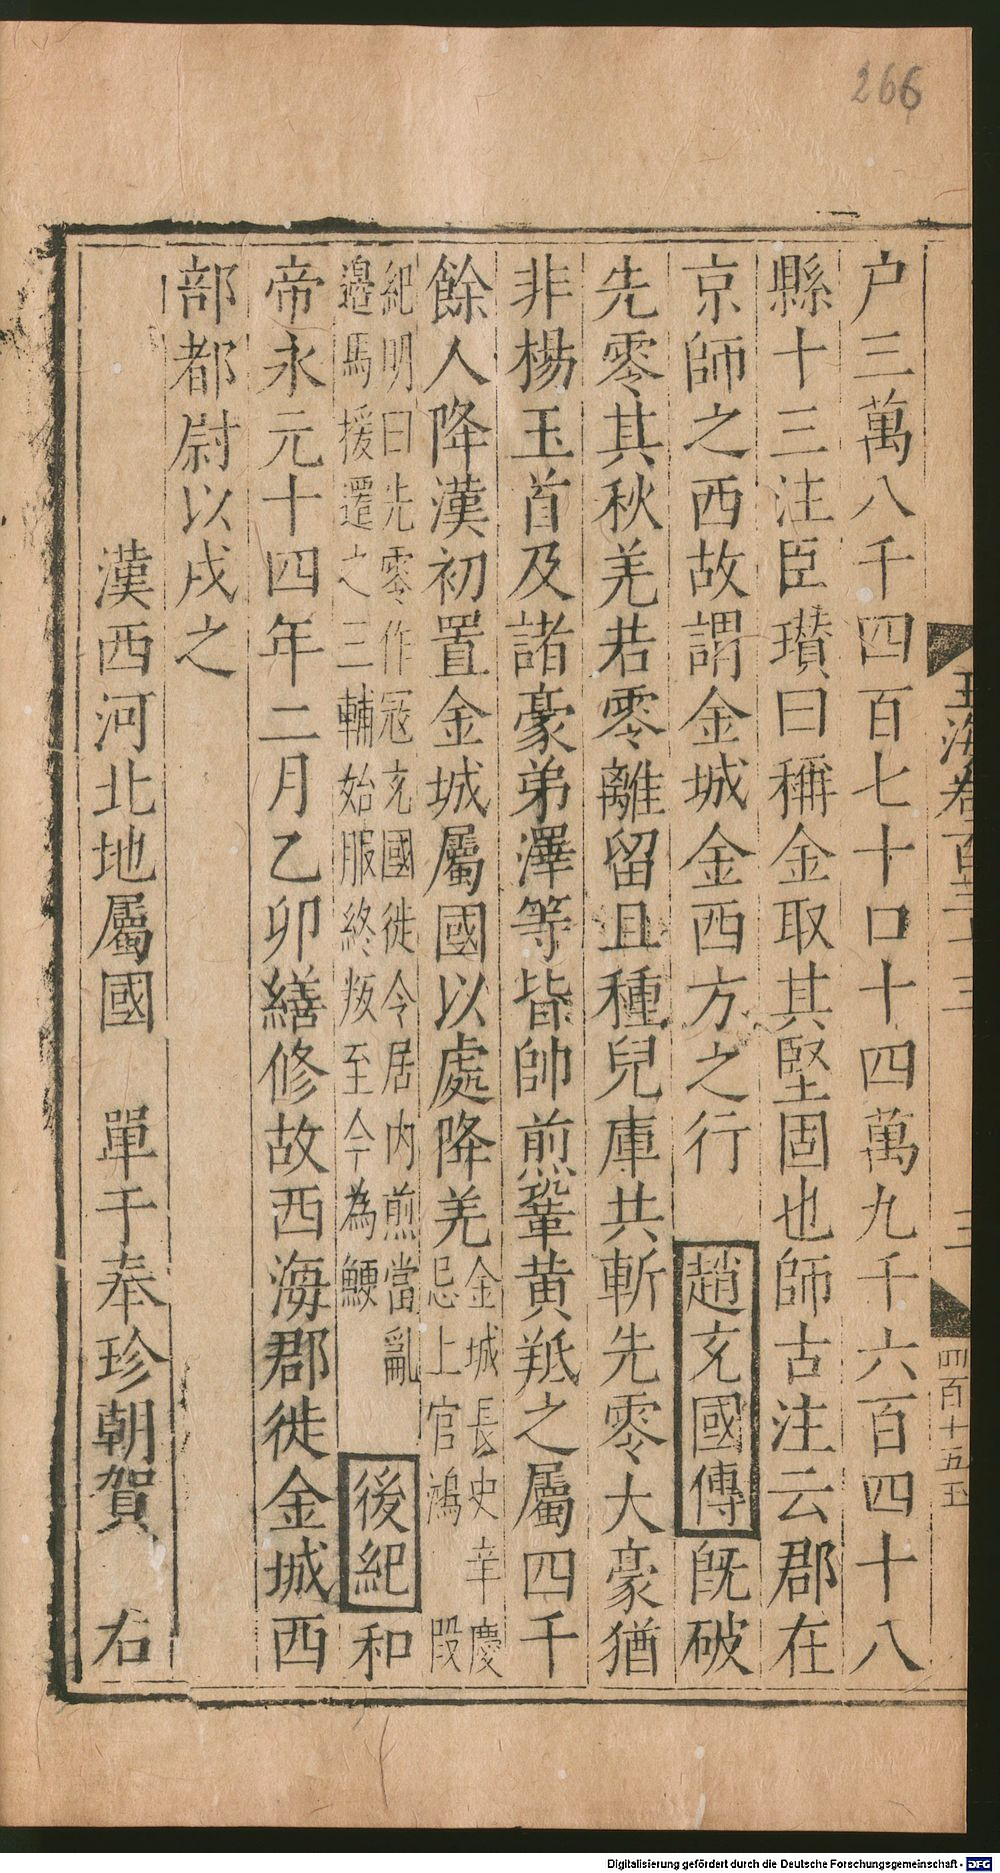 266
户三萬八千四百七十口十四萬九千六百四十八
縣十三注臣瓉曰稱金取其堅固也師古注云郡在
京師之西故謂金城金西方之行 趙充國傳 旣破
先零其秋羌若零離留且種兒庫共斬先零大豪猶
非楊玉首及諸豪弟澤等皆帥煎鞏黄羝之屬四千
餘人降漢初置金城屬國以處降羌
金城長史辛慶
忌上官鴻 段
紀明曰先零作寇充國徙令居内煎當亂
邉馬援遷之三輔始服終叛至今為鯁
後紀 和
帝永元十四年二月乙卯繕修故西海郡徙金城西
部都尉以戍之
漢西河北地屬國 單于奉珍朝賀 右
玉海卷百三十三
三
四百十五玉
Digitalisierung gefördert durch die Deutsche Forschungsgemeinschaft - DFG